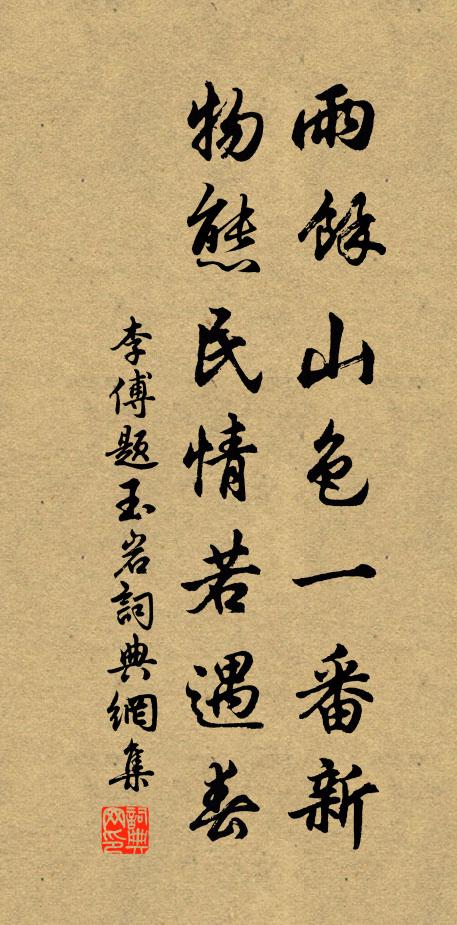 雨餘山色一番新
物態民情若遇春
李傅題玉岩詞典網集
詞典网印